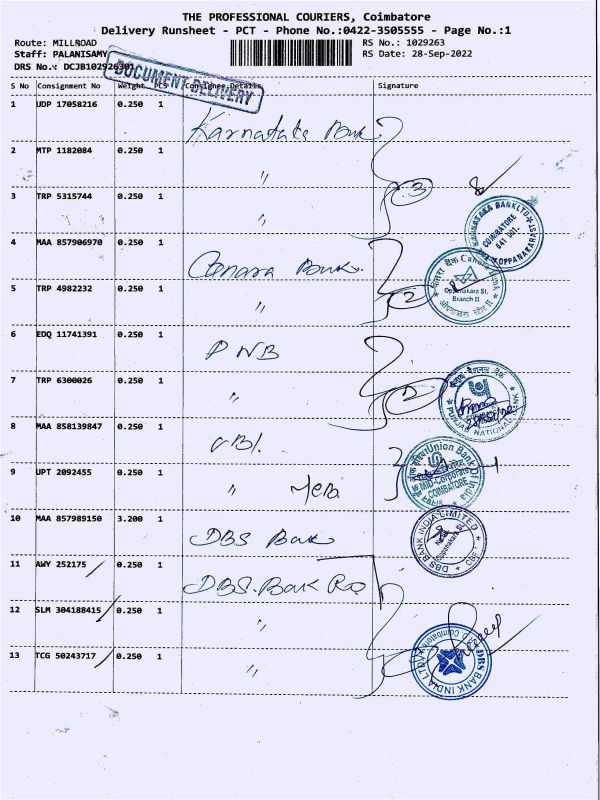 THE PROFESSIONAL COURIERS, Coimbatore
Delivery Runsheet - PCT - Phone No.:0422-3505555 - Page No.:1
Route: MILLROAD
RS No.: 1029263
Staff: PALANISAMY
RS Date: 28-Sep-2022
DRS No.: DCJB102926301
DOCUMENT DELIVERY
S No Consignment No Weight PCS Consignee Details Signature
1 UDP 17058216 0.250 1
Karnataka Bank
2 MTP 1182084 0.250 1 "
3
3 TRP 5315744 0.250 1 "
KARNATAKA BANK LTD
COIMBATORE
641 001
OPPANAKARA ST
4 MAA 857906970 0.250 1
Canara Bank.
केनरा बैंक Canara Bank
Oppanakara St.
Branch II
5 TRP 4982232 0.250 1 "
2
6 EDQ 11741391 0.250 1
PNB
7 TRP 6300026 0.250 1 "
2
पंजाब नैशनल बैंक
PUNJAB NATIONAL BANK
8 MAA 858139847 0.250 1
UBI.
Union Bank Of India
MID-Corporate
COIMBATORE
9 UPT 2092455 0.250 1 "
10 MAA 857989150 3.200 1
DBS Bank
DBS BANK INDIA LIMITED
CBE-1
11 AWY 252175 0.250 1
DBS. Bank RO
12 SLM 304188415 0.250 1 "
13 TCG 50243717 0.250 1 "
DBS BANK INDIA LTD
Coimbatore